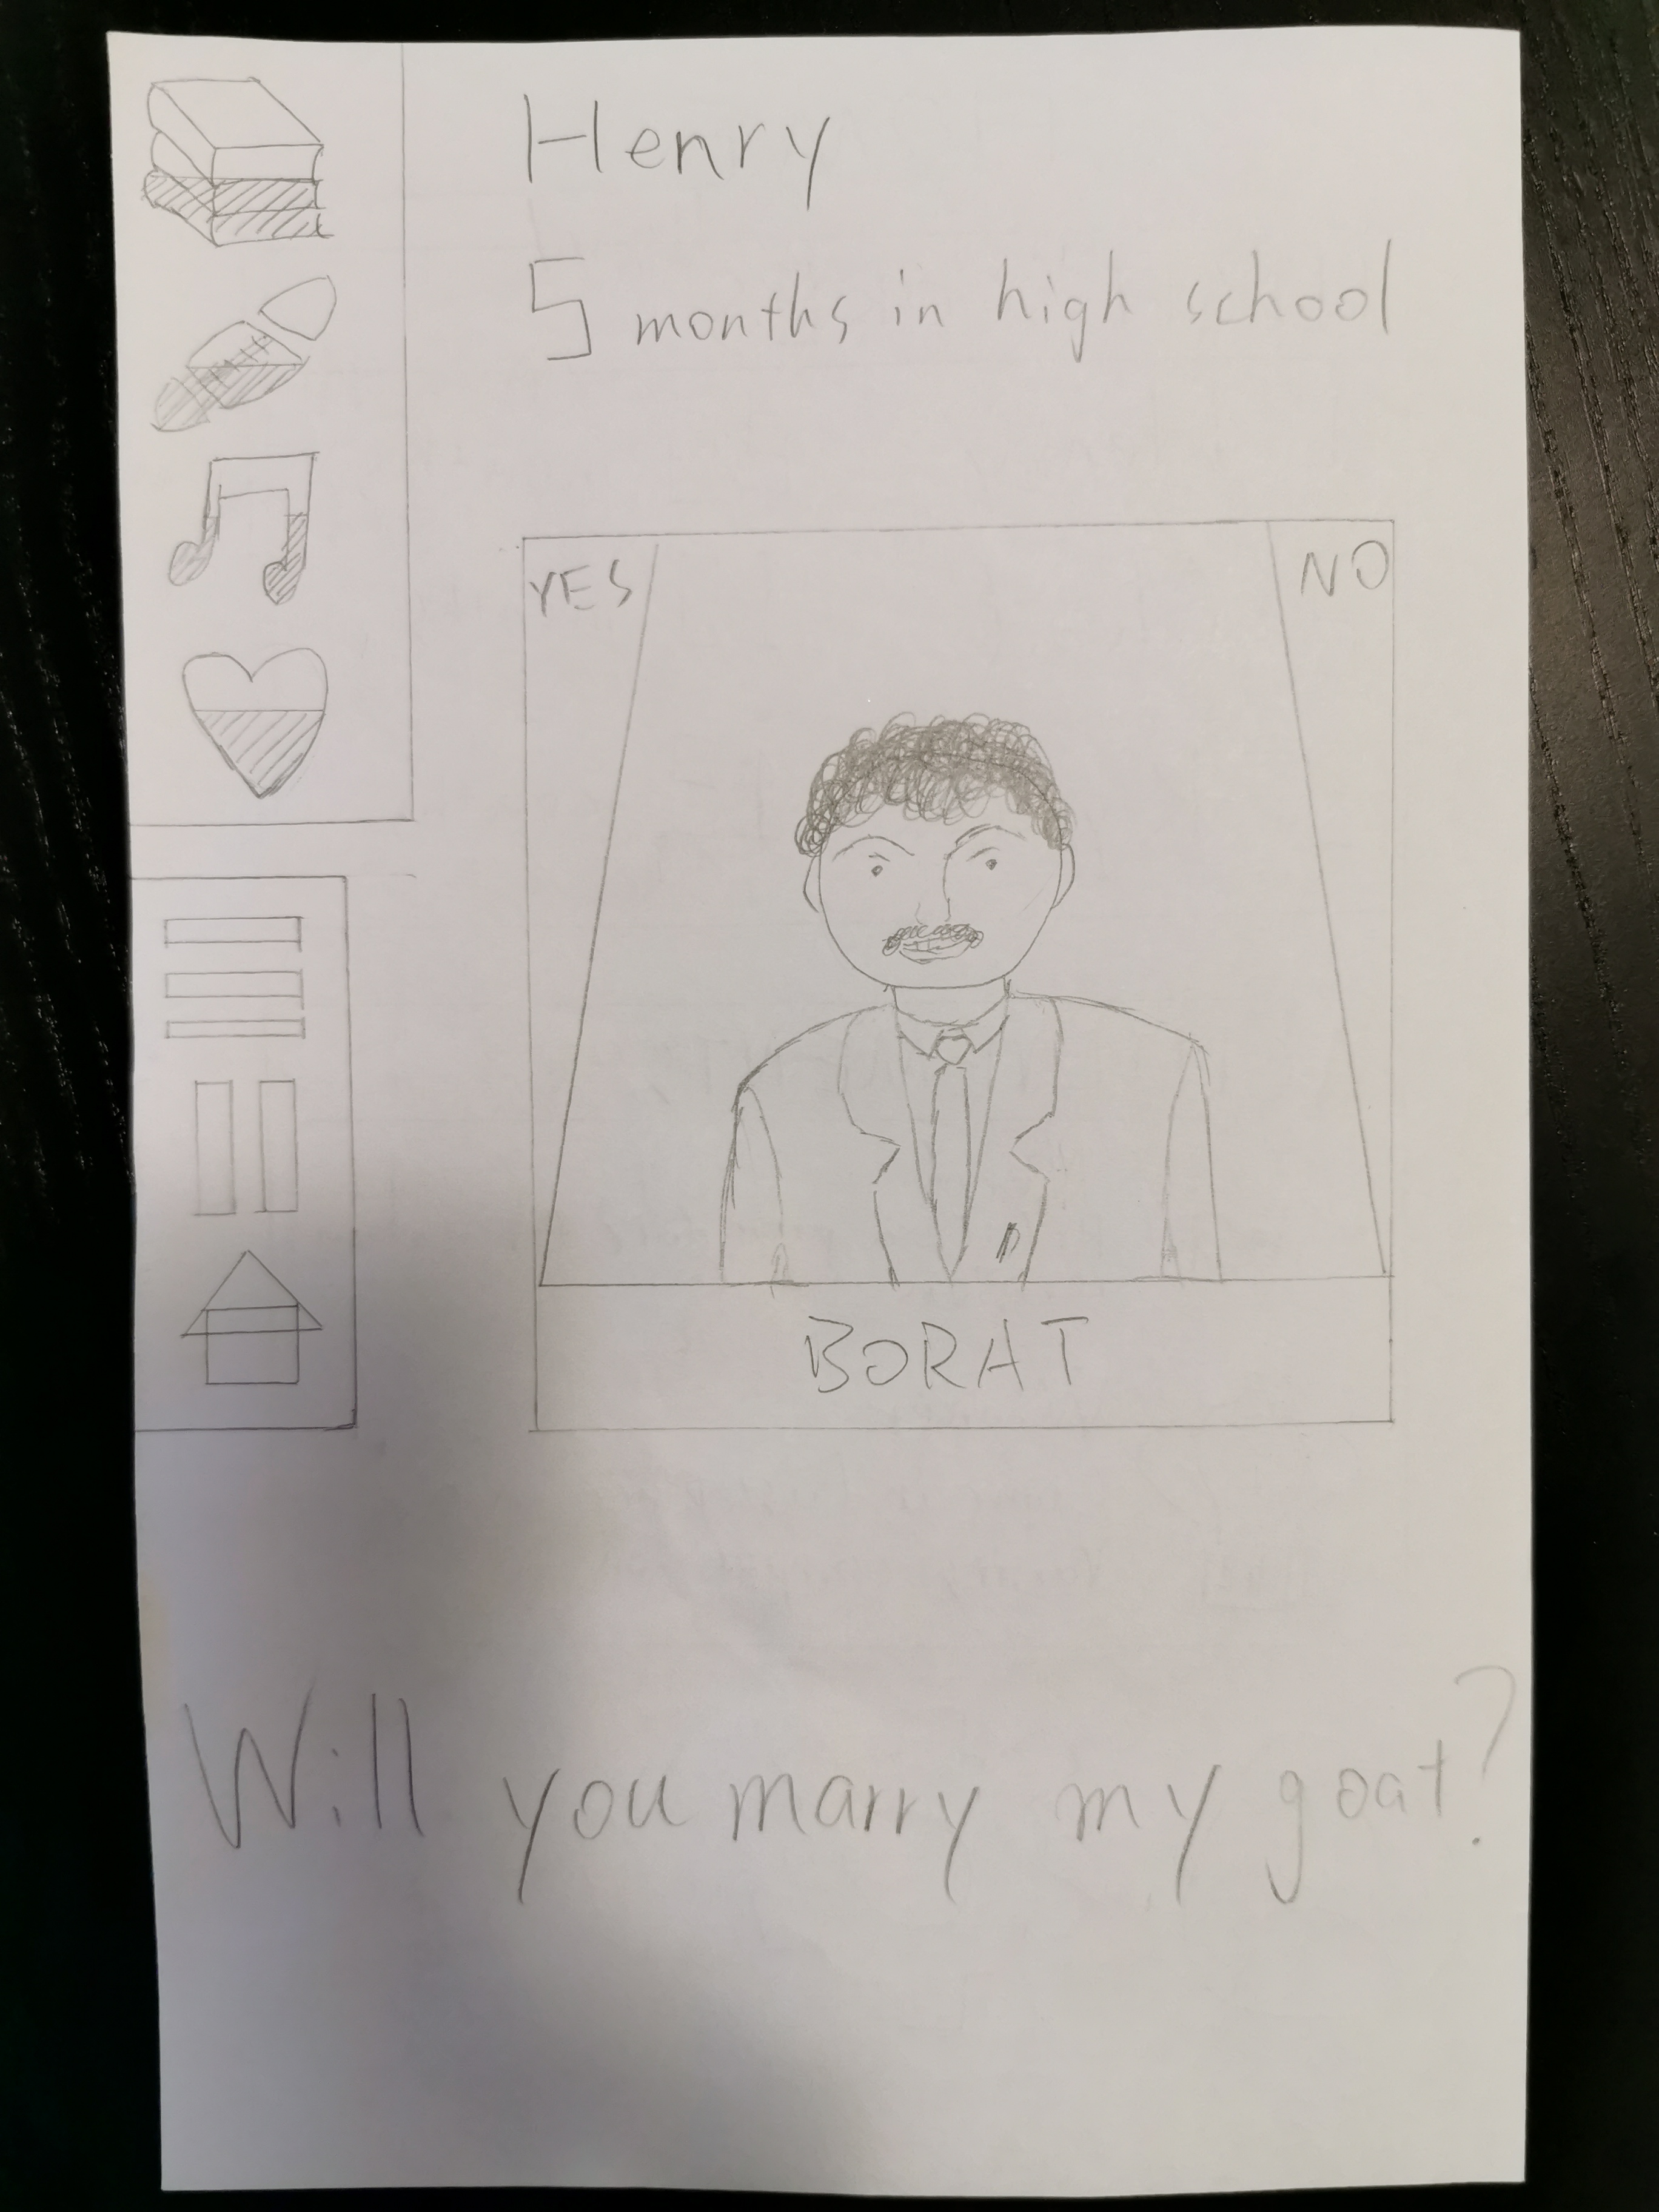 Henry
5 months in high school
YES
NO
BORAT
Will you marry my goat?